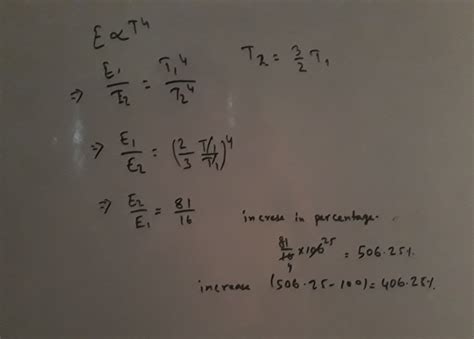 E ∝ T⁴
⇒ E₁/E₂ = T₁⁴/T₂⁴    T₂ = 3/2 T₁
⇒ E₁/E₂ = (2/3 T₁/T₁)⁴
⇒ E₂/E₁ = 81/16
increse in percentage.
81/16 × 100 25 = 506.25%
4
increase (506.25 - 100) = 406.25%